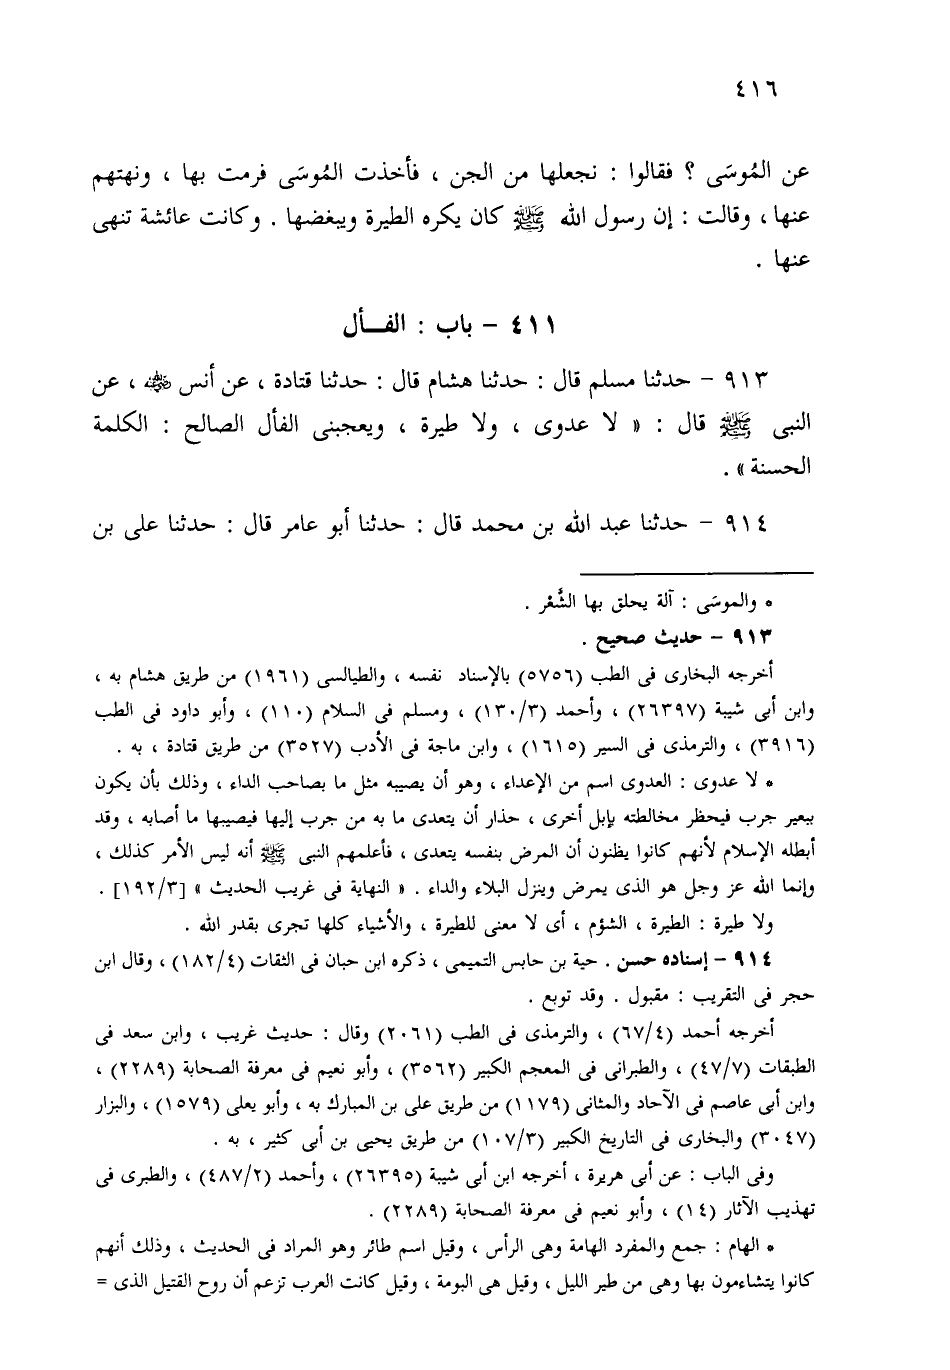 ٤١٦
عن المُوسَى ؟ فقالوا : نجعلها من الجن ، فأخذت المُوسَى فرمت بها ، ونهتهم
عنها ، وقالت : إن رسول الله ﷺ كان يكره الطيرة ويبغضها . وكانت عائشة تنهى
عنها .
٤١١ - باب : الفـــأل
٩١٣ - حدثنا مسلم قال : حدثنا هشام قال : حدثنا قتادة ، عن أنس رضي الله عنه ، عن
النبى ﷺ قال : « لا عدوى ، ولا طيرة ، ويعجبنى الفأل الصالح : الكلمة
الحسنة » .
٩١٤ - حدثنا عبد الله بن محمد قال : حدثنا أبو عامر قال : حدثنا على بن
* والموسَى : آلة يحلق بها الشَّعْر .
٩١٣ - حديث صحيح .
أخرجه البخارى فى الطب (٥٧٥٦) بالإسناد نفسه ، والطيالسى (١٩٦١) من طريق هشام به ،
وابن أبى شيبة (٢٦٣٩٧) ، وأحمد (١٣٠/٣) ، ومسلم فى السلام (١١٠) ، وأبو داود فى الطب
(٣٩١٦) ، والترمذى فى السير (١٦١٥) ، وابن ماجة فى الأدب (٣٥٢٧) من طريق قتادة ، به .
* لا عدوى : العدوى اسم من الإعداء ، وهو أن يصيبه مثل ما بصاحب الداء ، وذلك بأن يكون
ببعير جرب فيحظر مخالطته بإبل أخرى ، حذار أن يتعدى ما به من جرب إليها فيصيبها ما أصابه ، وقد
أبطله الإسلام لأنهم كانوا يظنون أن المرض بنفسه يتعدى ، فأعلمهم النبى ﷺ أنه ليس الأمر كذلك ،
وإنما الله عز وجل هو الذى يمرض وينزل البلاء والداء . « النهاية فى غريب الحديث » [١٩٢/٣] .
ولا طيرة : الطيرة ، الشؤم ، أى لا معنى للطيرة ، والأشياء كلها تجرى بقدر الله .
٩١٤ - إسناده حسن . حية بن حابس التميمى ، ذكره ابن حبان فى الثقات (١٨٢/٤) ، وقال ابن
حجر فى التقريب : مقبول . وقد توبع .
أخرجه أحمد (٦٧/٤) ، والترمذى فى الطب (٢٠٦١) وقال : حديث غريب ، وابن سعد فى
الطبقات (٤٧/٧) ، والطبرانى فى المعجم الكبير (٣٥٦٢) ، وأبو نعيم فى معرفة الصحابة (٢٢٨٩) ،
وابن أبى عاصم فى الآحاد والمثانى (١١٧٩) من طريق على بن المبارك به ، وأبو يعلى (١٥٧٩) ، والبزار
(٣٠٤٧) والبخارى فى التاريخ الكبير (١٠٧/٣) من طريق يحيى بن أبى كثير ، به .
وفى الباب : عن أبى هريرة ، أخرجه ابن أبى شيبة (٢٦٣٩٥) ، وأحمد (٤٨٧/٢) ، والطبرى فى
تهذيب الآثار (١٤) ، وأبو نعيم فى معرفة الصحابة (٢٢٨٩) .
* الهام : جمع والمفرد الهامة وهى الرأس ، وقيل اسم طائر وهو المراد فى الحديث ، وذلك أنهم
كانوا يتشاءمون بها وهى من طير الليل ، وقيل هى البومة ، وقيل كانت العرب تزعم أن روح القتيل الذى =